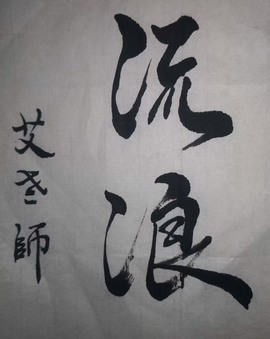 流浪
艾老師